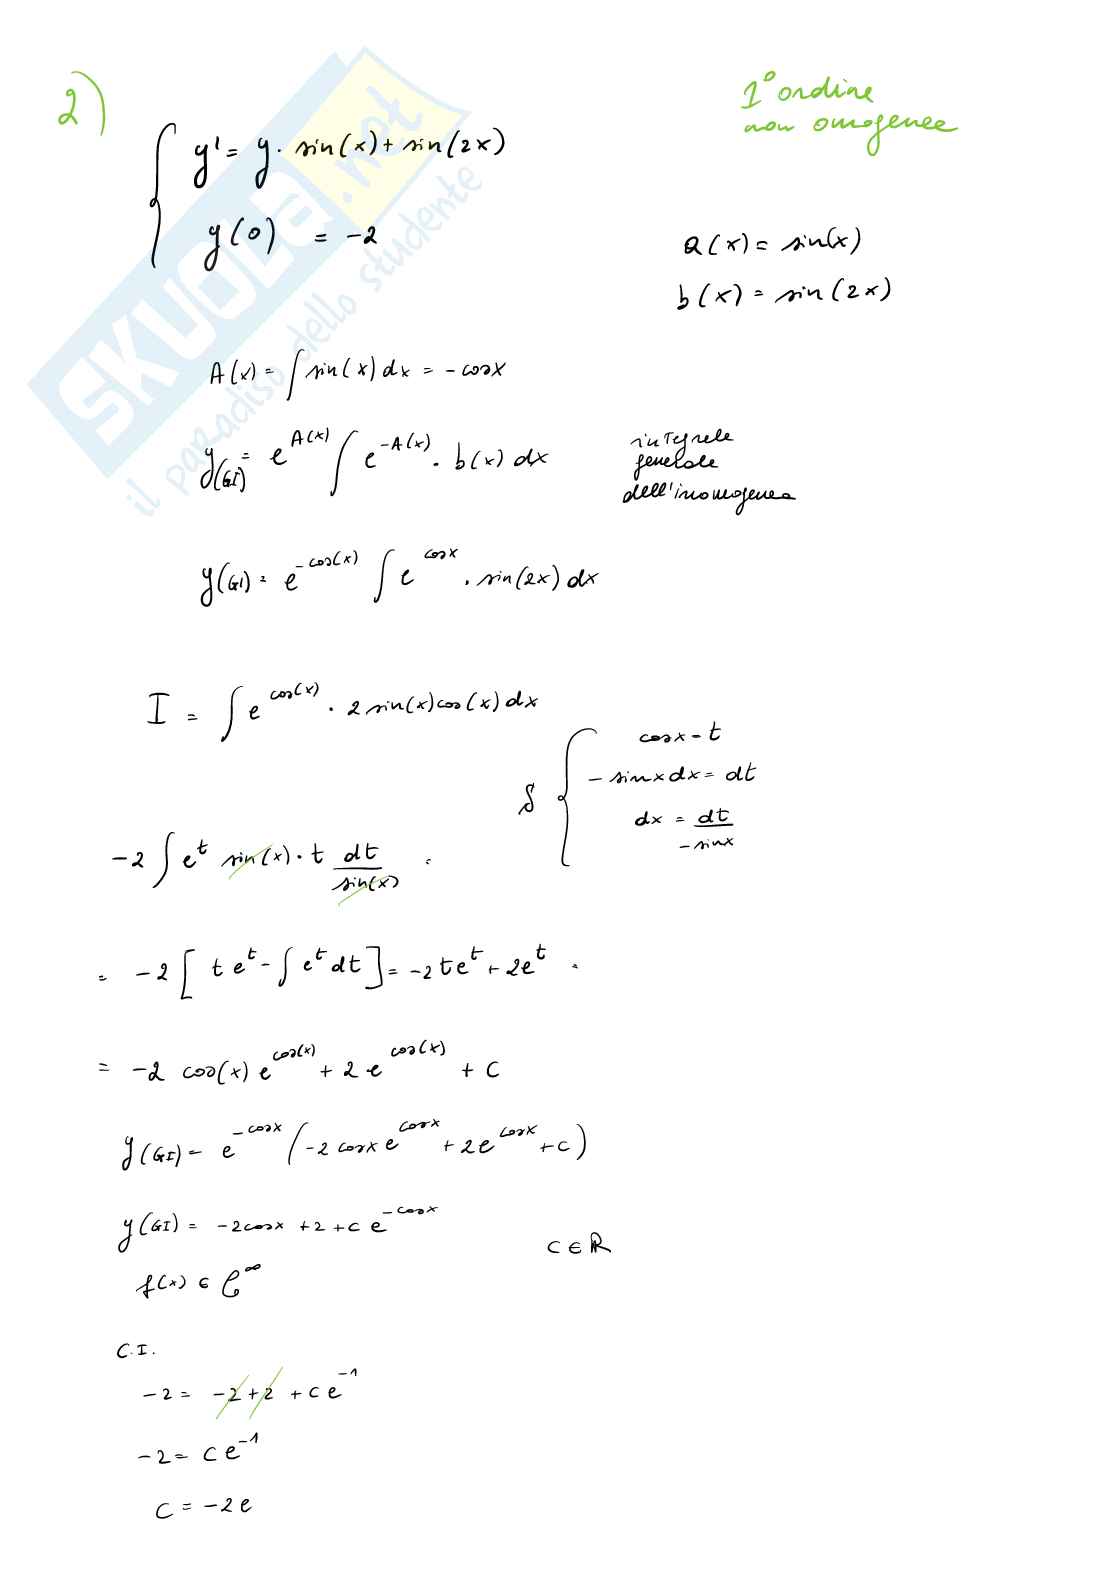 2)
1° ordine
non omogenee
y' = y · sin(x) + sin(2x)
y(0) = -2
a(x) = sin(x)
b(x) = sin(2x)
SKUOLA.net
il paradiso dello studente
A(x) = ∫ sin(x) dx = - cosx
y(GI) = e^{A(x)} ∫ e^{-A(x)} · b(x) dx
integrale
generale
dell'inomogenea
y(GI) = e^{-cos(x)} ∫ e^{cosx} · sin(2x) dx
I = ∫ e^{cos(x)} · 2 sin(x) cos(x) dx
S { cosx = t
- sinx dx = dt
dx = dt / -sinx
-2 ∫ e^t sin(x) · t dt / sin(x) =
= -2 [ t e^t - ∫ e^t dt ] = -2te^t + 2e^t =
= -2 cos(x) e^{cos(x)} + 2 · e^{cos(x)} + c
y(GI) = e^{-cosx} ( -2 cosx e^{cosx} + 2e^{cosx} + c )
y(GI) = -2cosx + 2 + c e^{-cosx}
c ∈ ℝ
f(x) ∈ C^∞
C.I.
-2 = -2 + 2 + c e^{-1}
-2 = c e^{-1}
c = -2e